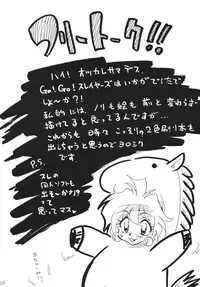 フリートーク!!
ハイ! オツカレサマデス
GO! GO! スレイヤーズはいかがでしたで
しょーか?!
私的には ノリも絵も 前と変わらず
描けてると思ってるんですが…
これからも 時々 こっそり2色刷り本を
出しちゃうと思うのでヨロシク
です
P.S.
スレの
同人ソフトも
出そーか?!って
思ってマス